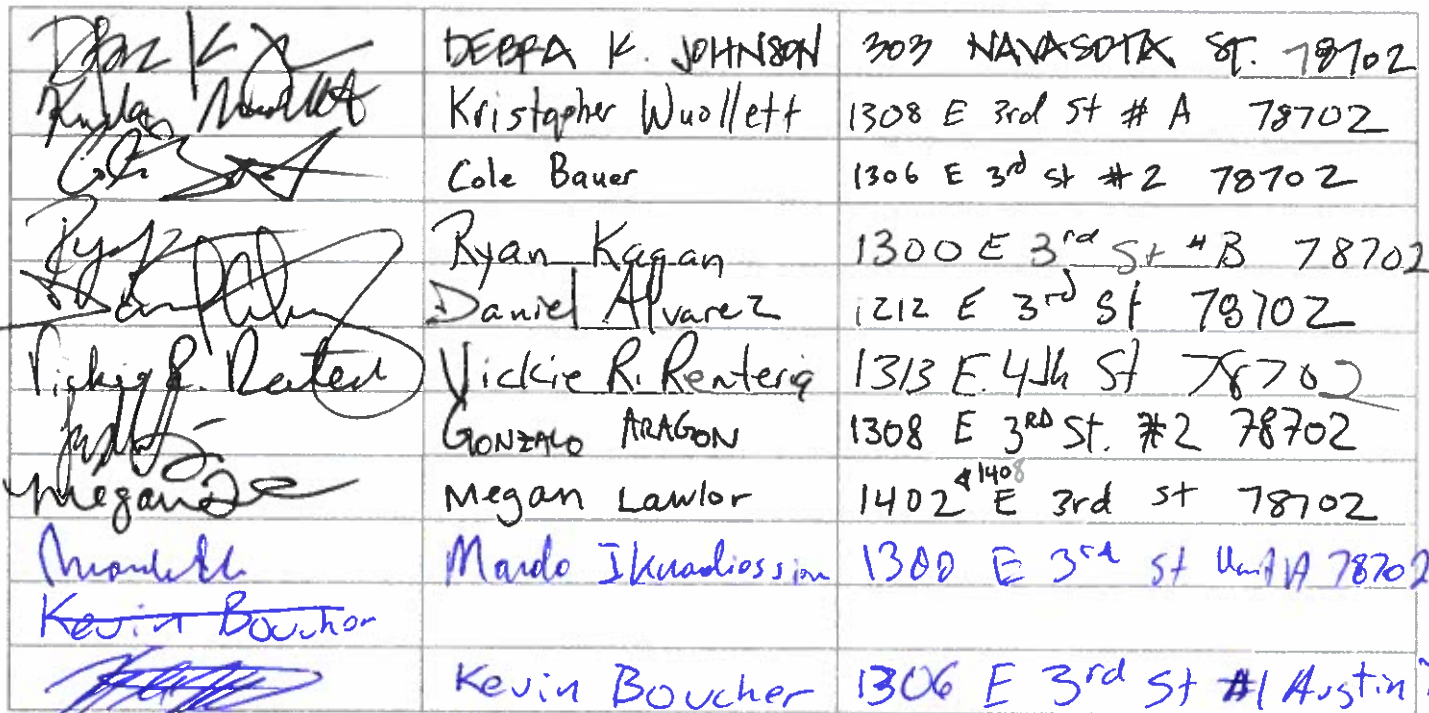 DEBRA K. JOHNSON 303 NAVASOTA St. 78702
Kristopher Wuollett 1308 E 3rd St # A 78702
Cole Bauer 1306 E 3rd St #2 78702
Ryan Kagan 1300 E 3rd St #B 78702
Daniel Alvarez 1212 E 3rd St 78702
Vickie R. Renteria 1313 E. 4th St 78702
GONZALO ARAGON 1308 E 3RD St. #2 78702
Megan Megan Lawlor 1402 & 1408 E 3rd St 78702
Mardo 1300 E 3rd St Unit A 78702
Kevin Bouchor
Kevin Boucher 1306 E 3rd St #1 Austin